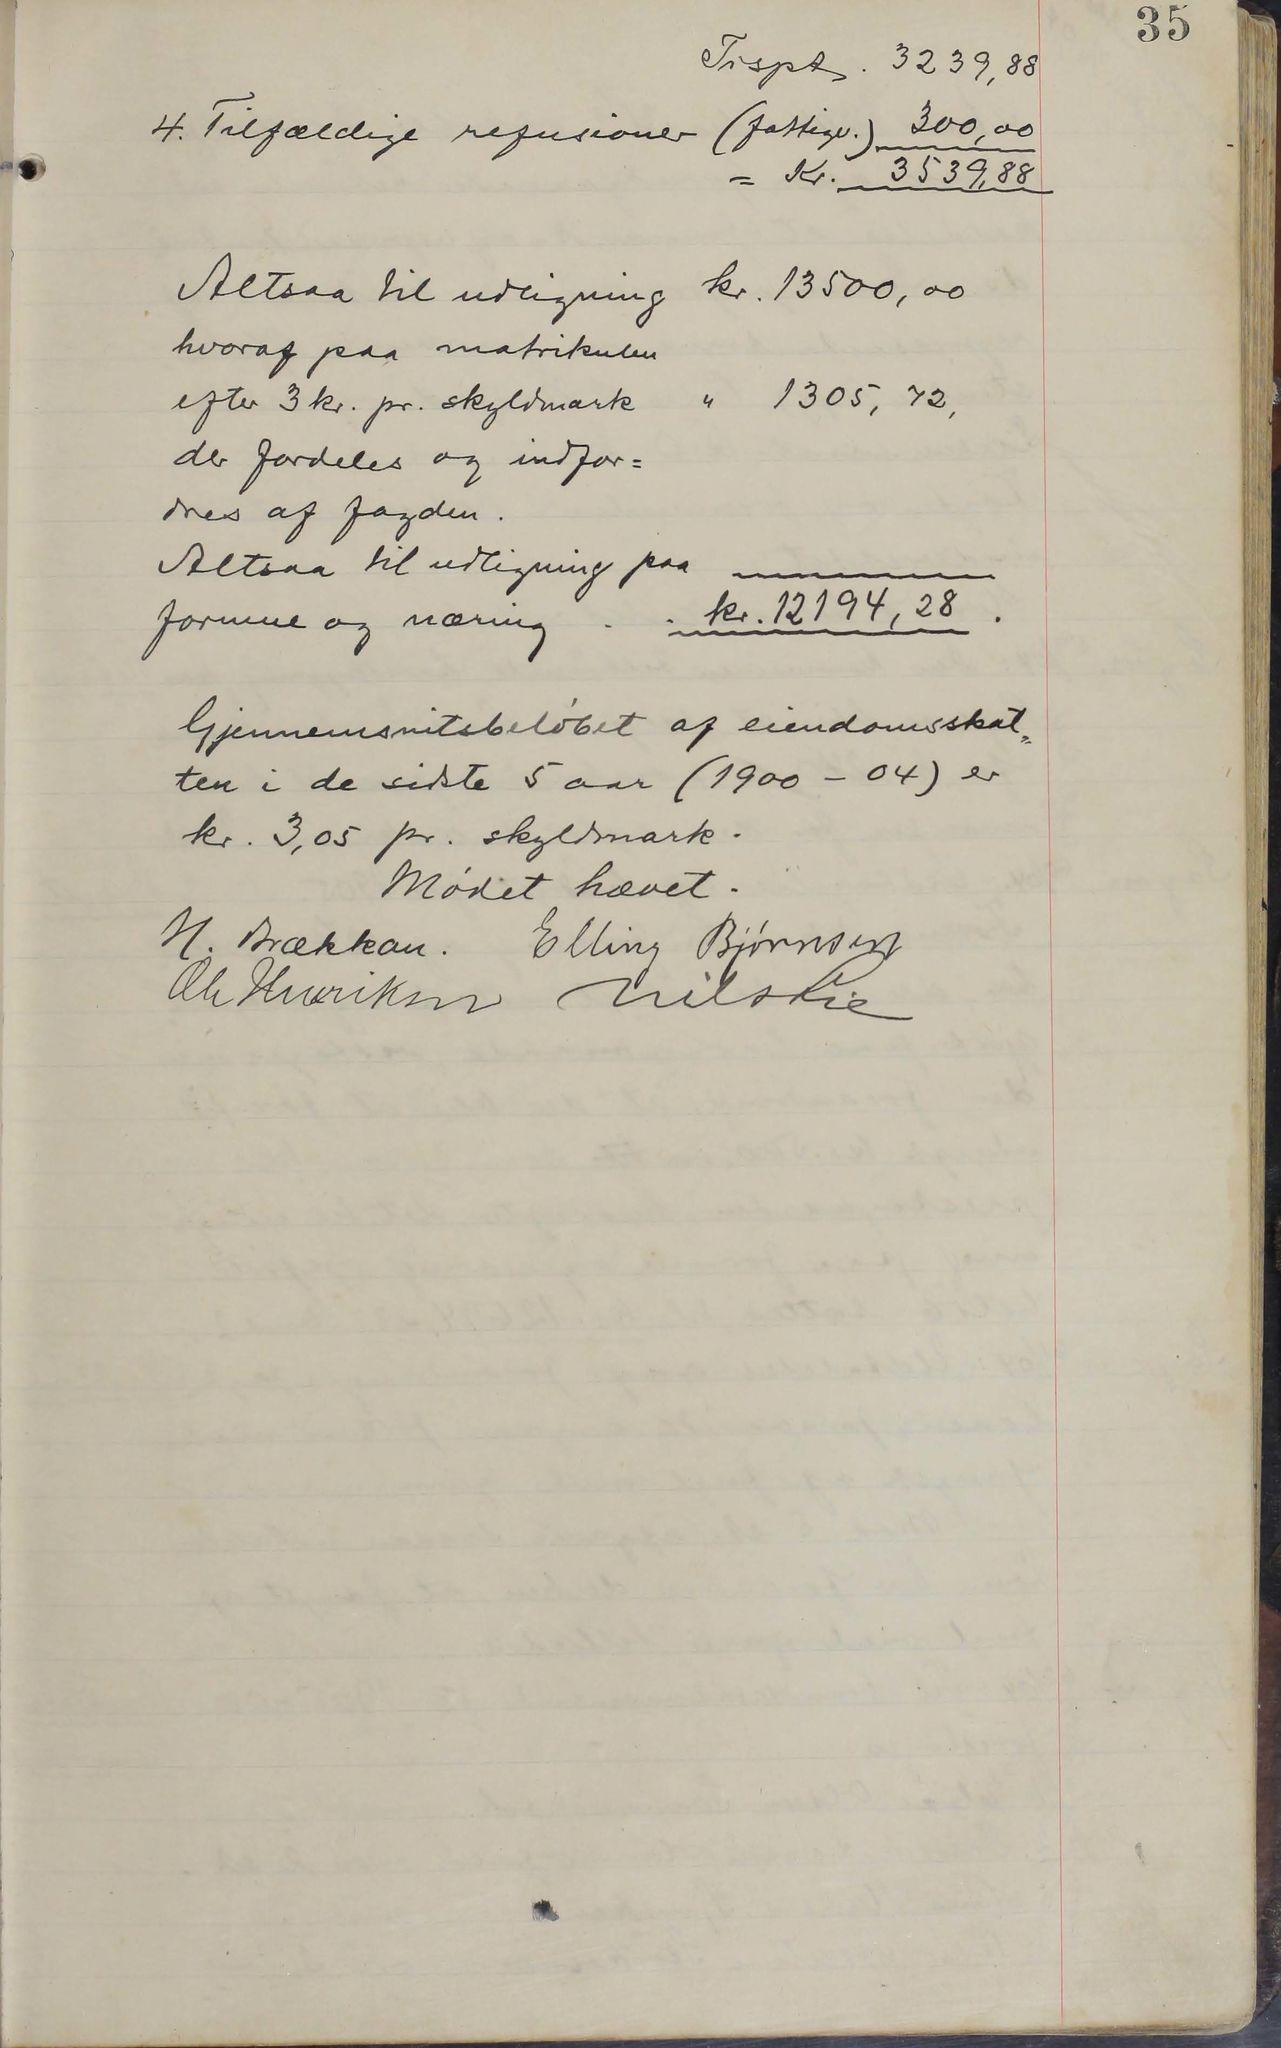 35
Trspt. 3239,88
4. Tilfældige refusioner (fattigv.) 300,00
= Kr. 3539,88
Altsaa til udligning kr. 13500,00
hvoraf paa matrikulen
efter 3 kr. pr. skyldmark " 1305,72,
der fordeles og indfor=
dres af fogden.
Altsaa til udligning paa
formue og næring . . kr. 12194,28.
Gjennemsnitsbeløbet af eiendomsskat„
ten i de sidste 5 aar (1900 - 04) er
kr. 3,05 pr. skyldmark.
Mødet hævet.
H. Brækkan. Elling Bjørnsen
Ole Henriksen Nils Lie